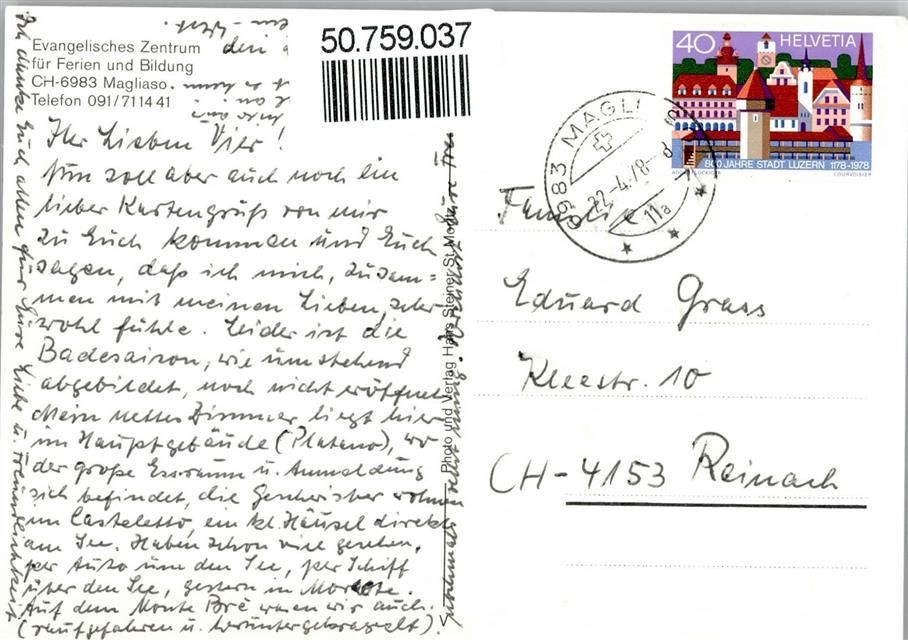 Evangelisches Zentrum
für Ferien und Bildung
CH-6983 Magliaso
Telefon 091/71 14 41
50.759.037
Ihr Lieben Vier!
Nun soll aber auch noch ein
lieber Kartengruß von mir
zu Euch kommen und Euch
sagen, daß ich mich, zusam=
men mit meinen Lieben, sehr
wohl fühle. Leider ist die
Badesaison, wie umstehend
abgebildet, noch nicht eröffnet
Mein nettes Zimmer liegt hier
im Hauptgebäude (Platano), wo
der große Essraum u. Anmeldung
sich befindet, die Geschwister wohnen
im Casteletto, ein kl. Häusel direkt
am See. Haben schon viel gesehen,
per Auto um den See, per Schiff
über den See, gestern in Morcote.
Auf dem Monte Brè waren wir auch.
(raufgefahren u. heruntergekraxelt).
Ich danke Euch allen für Eure Liebe u. Freundlichkeit
Photo und Verlag Hans Steiner, St. Mor
HELVETIA
40
800 JAHRE STADT LUZERN 1178-1978
COURVOISIER
6983 MAGLI
22.-4.78-8
11a
Familie
Eduard Grass
Kleestr. 10
CH-4153 Reinach